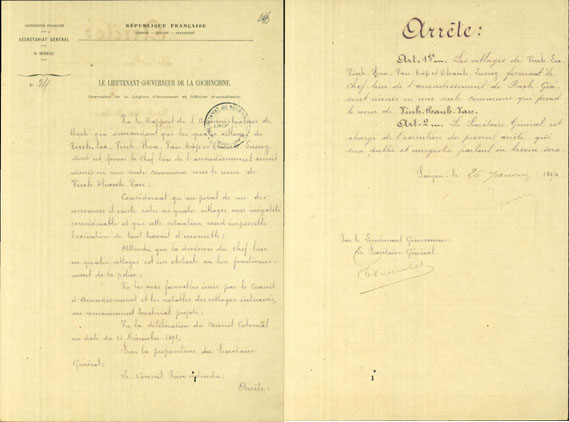 RÉPUBLIQUE FRANÇAISE
LIBERTÉ - ÉGALITÉ - FRATERNITÉ
SECRÉTARIAT GÉNÉRAL
BUREAU
LE LIEUTENANT-GOUVERNEUR DE LA COCHINCHINE,
Chevalier de la Légion d'honneur et Officier d'académie,
Vu le Rapport de l'Administrateur de
Rach Gia demandant que les quatre villages de
Vinh Hoa, Van Tap et Thanh Luong
dont est formé le Chef-lieu de l'arrondissement soient
réunis en une seule commune sous le nom de
Vinh Thanh Van;
Considérant qu'au point de vue des
ressources il existe entre ces quatre villages une inégalité
considérable et que cette situation rend impossible
l'exécution de tout travail d'ensemble;
Attendu que la division du chef-lieu
en quatre villages est un obstacle au bon fonctionne-
ment de la police;
Vu les avis favorables émis par le Conseil
d'arrondissement et les notables des villages intéressés,
au remaniement territorial projeté;
Vu la délibération du Conseil Colonial
en date du 15 Décembre
Sur la proposition du Secrétaire
Général;
Le Conseil Privé entendu;
Arrête:
Arrête:
Art. 1er. Les villages de Vinh
Vinh Hoa, Van Tap et Thanh Luong formant le
Chef-lieu de l'arrondissement de Rach Gia
sont réunis en une seule commune qui prend
le nom de Vinh Thanh Van.
Art. 2. Le Secrétaire Général est
chargé de l'exécution du présent arrêté, qui
sera publié et enregistré partout où besoin sera.
Saigon, le 26 janvier
Par le Lieutenant Gouverneur:
Le Secrétaire Général,